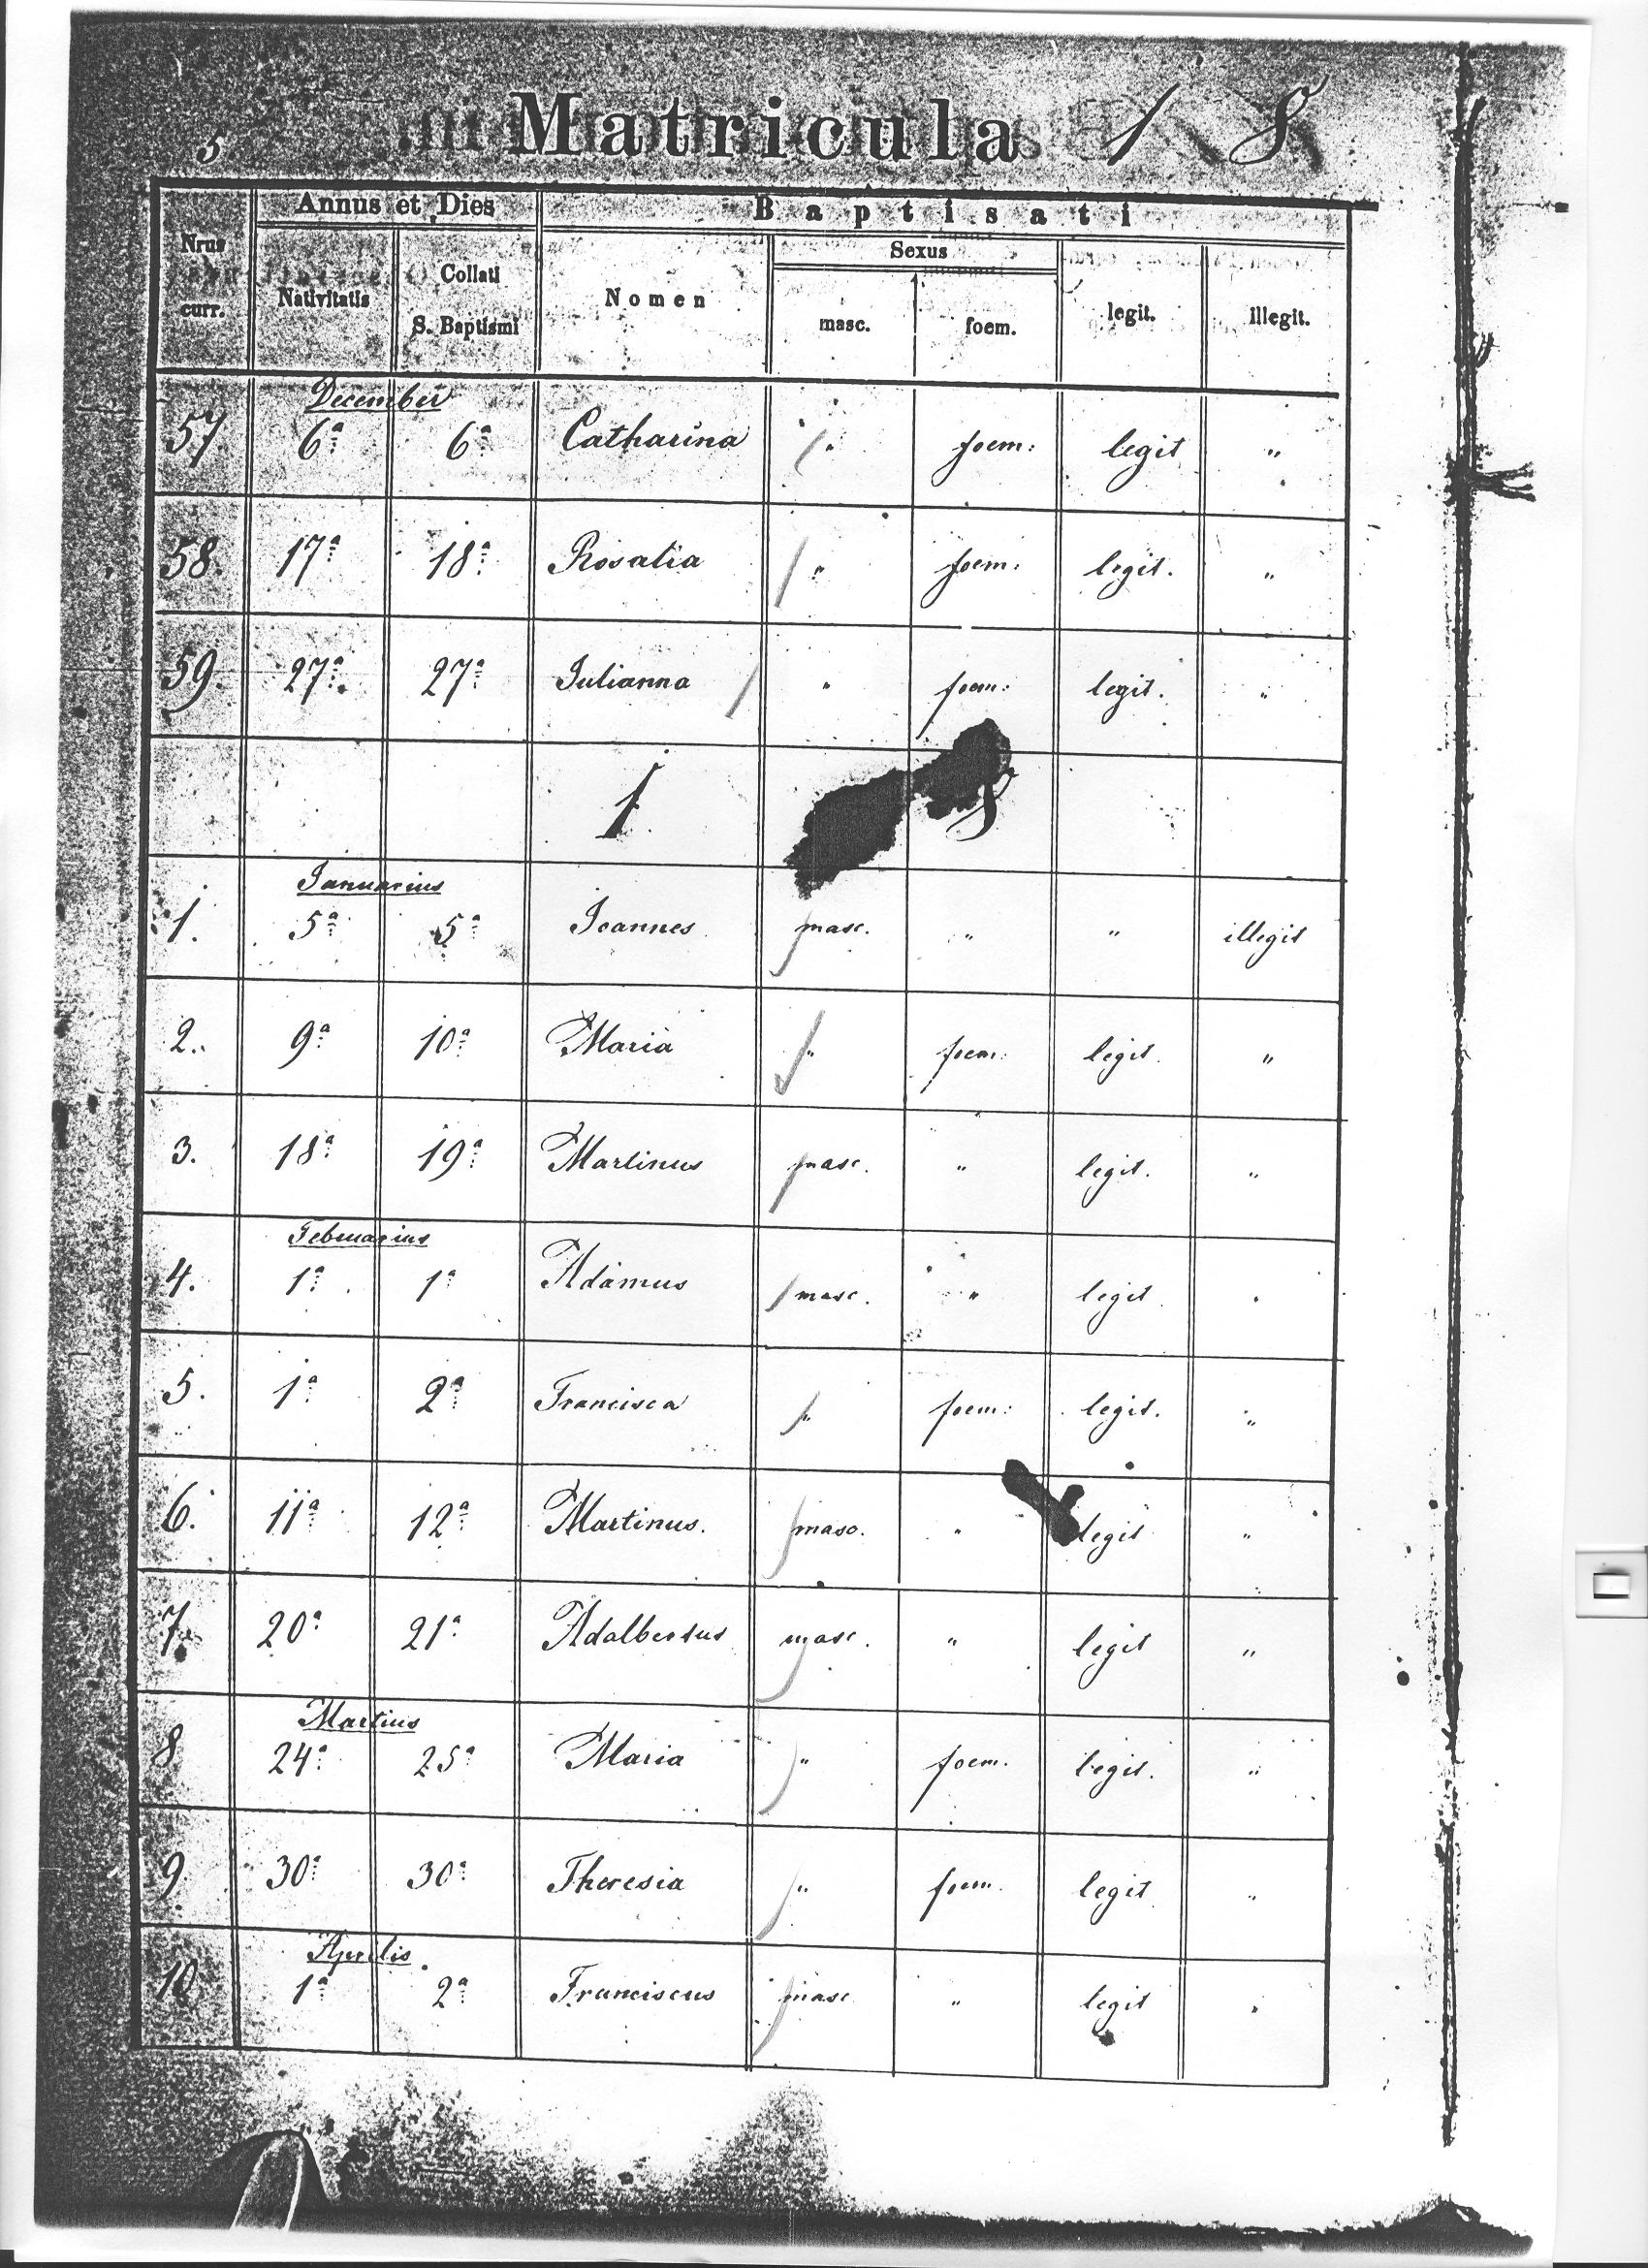 5 Matricula 1 8
Annus et Dies Baptisati
Nrus curr. Nativitatis Collati S. Baptismi Nomen Sexus masc. foem. legit. illegit.
December
57 6ª 6ª Catharina " foem: legit "
58. 17ª 18ª Rosalia " foem: legit. "
59. 27ª 27ª Julianna " foem: legit. "
1 8
Januarius
1. 5ª 5ª Joannes masc. " " illegit
2. 9ª 10ª Maria " foem: legit. "
3. 18ª 19ª Martinus masc. " legit. "
Februarius
4. 1ª 1ª Adamus masc. " legit.
5. 1ª 2ª Francisca " foem: legit. "
6. 11ª 12ª Martinus. masc. " legit "
7. 20ª 21ª Adalbertus masc. " legit "
Martius
8 24ª 25ª Maria " foem. legit. "
9 30ª 30ª Theresia " foem. legit "
Aprilis
10 1ª 2ª Franciscus masc " legit